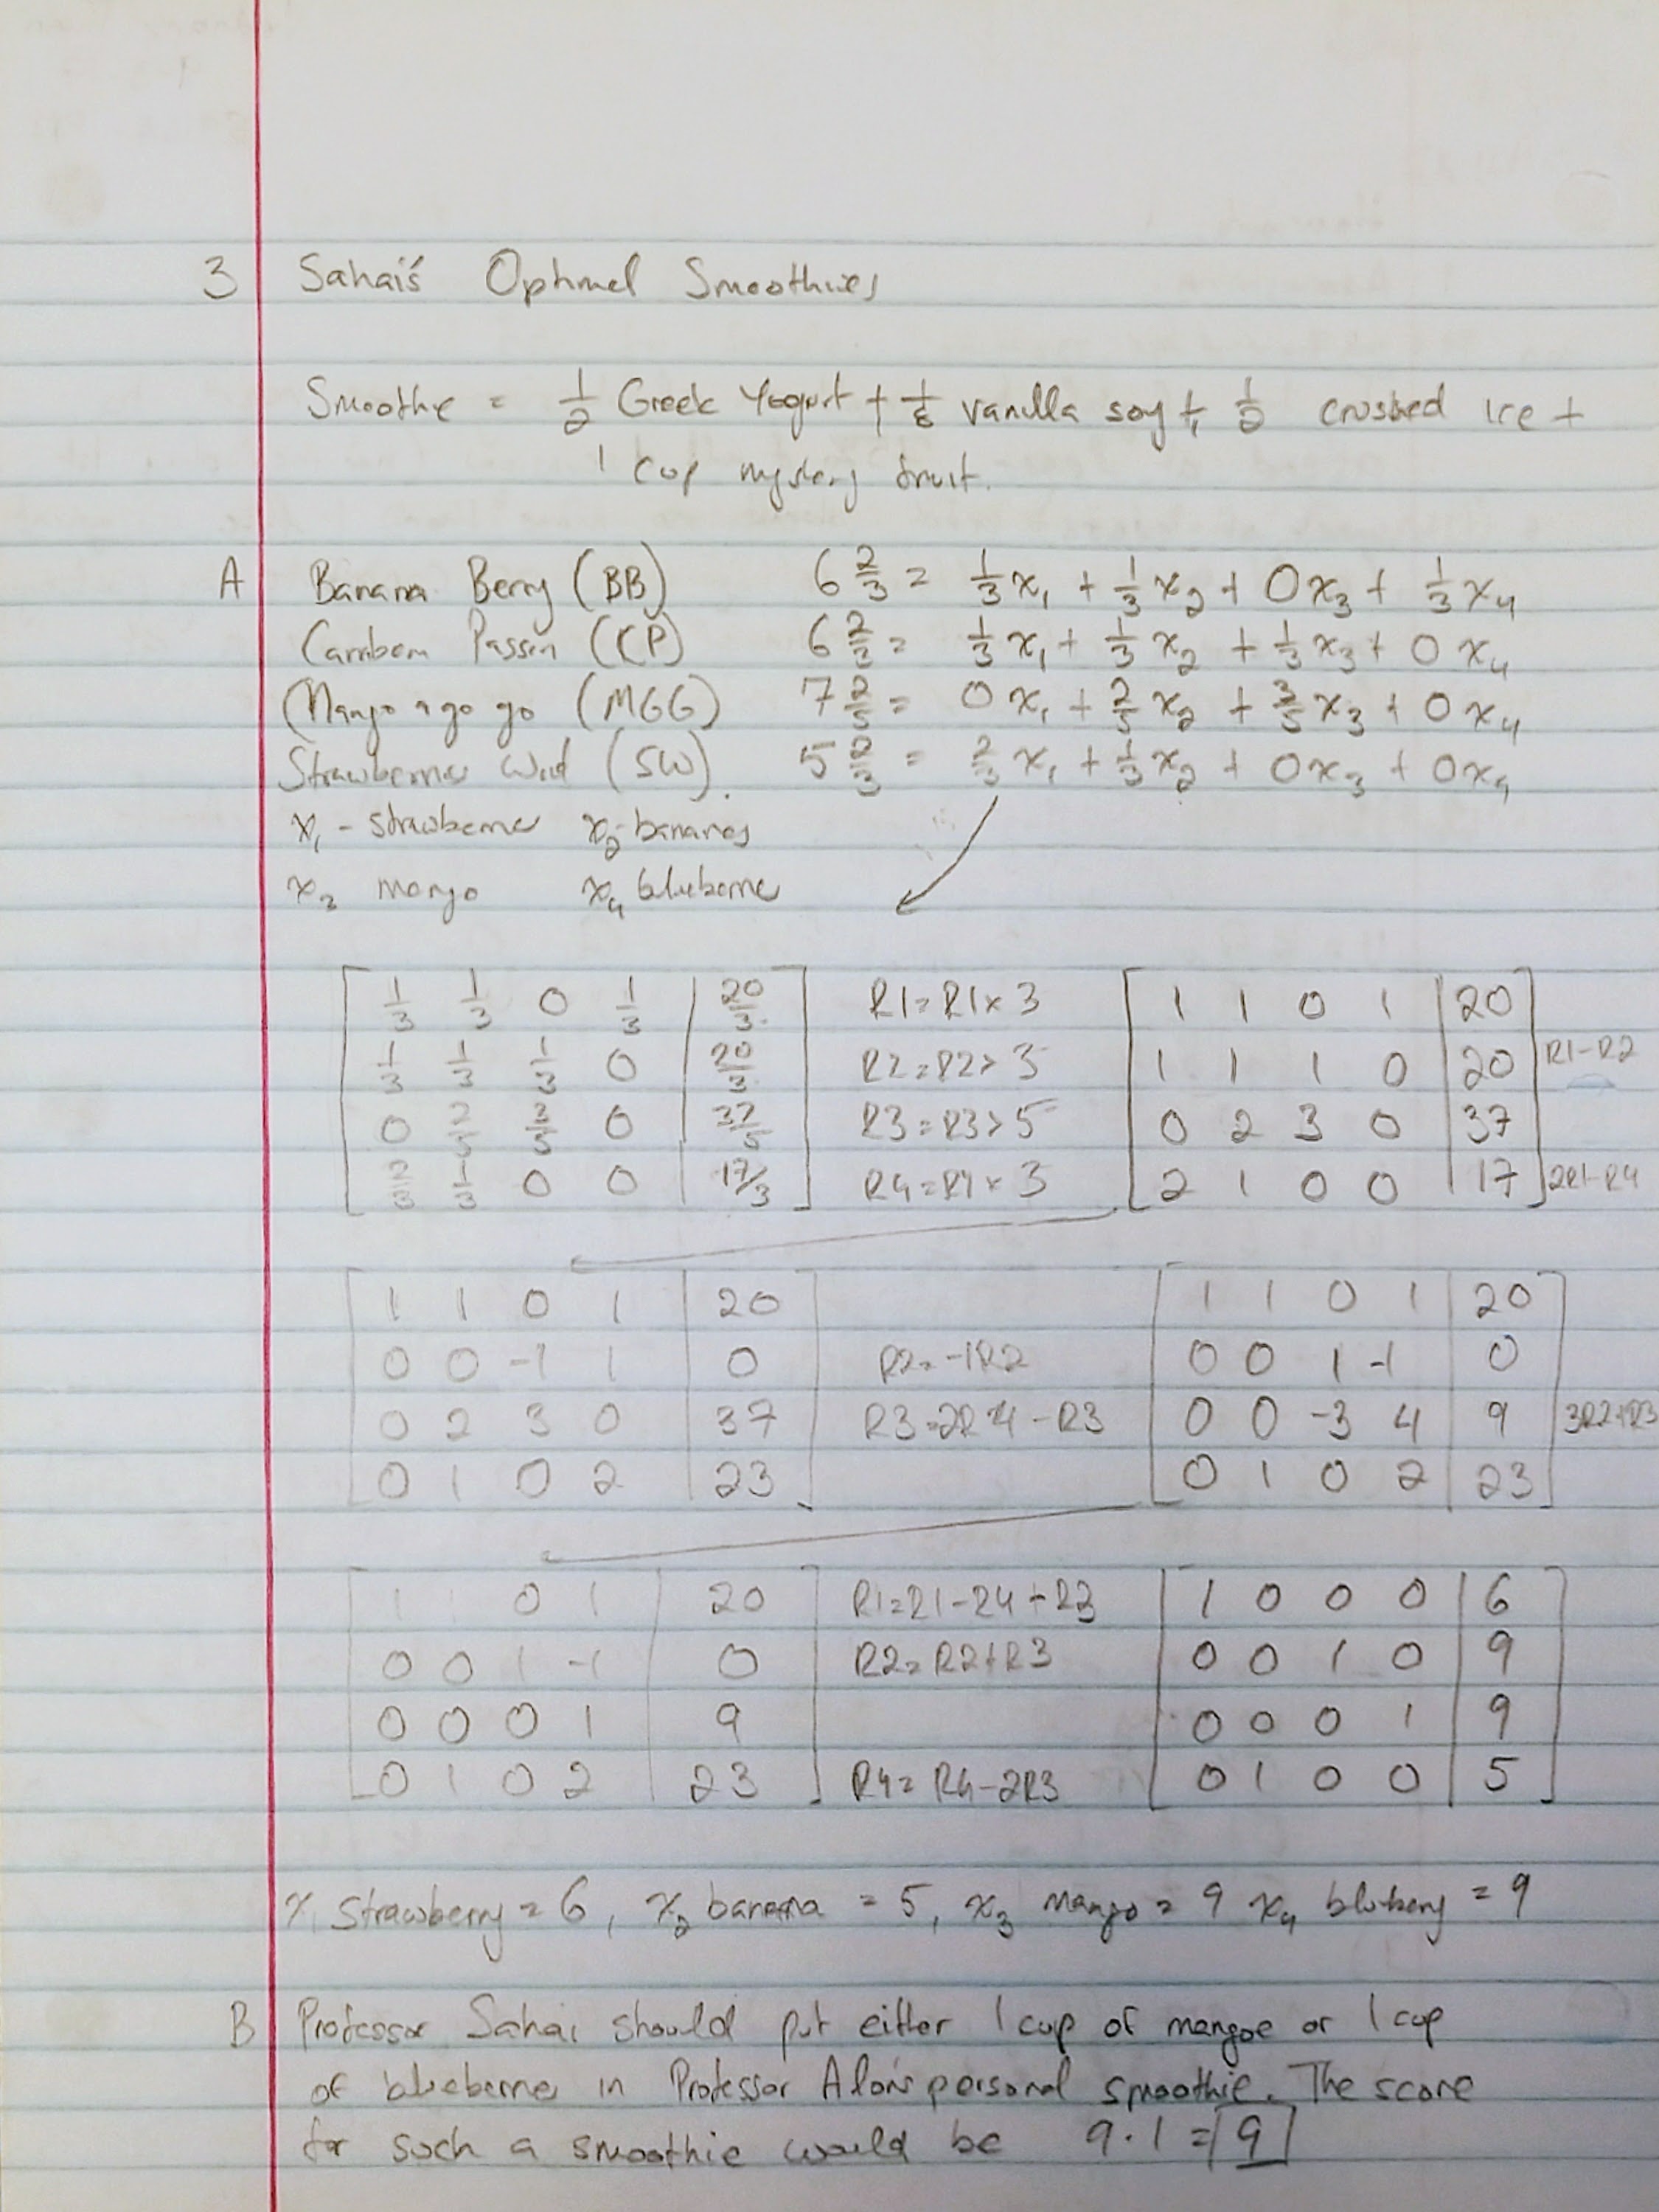 3 Sahai's Optimal Smoothies
Smoothie = 1/2 Greek Yogurt + 1/8 vanilla soy + 1/2 crushed ice +
1 cup mystery fruit.
A Banana Berry (BB) 6 2/3 = 1/3 x₁ + 1/3 x₂ + 0x₃ + 1/3 x₄
Carribean Passion (CP) 6 2/3 = 1/3 x₁ + 1/3 x₂ + 1/3 x₃ + 0 x₄
Mango a go go (MGG) 7 2/5 = 0 x₁ + 2/5 x₂ + 3/5 x₃ + 0 x₄
Strawberries Wild (SW). 5 2/3 = 2/3 x₁ + 1/3 x₂ + 0x₃ + 0x₄
x₁ - strawberries x₂ - bananas
x₃ mango x₄ blueberries
1/3 1/3 0 1/3 | 20/3 R1 = R1 × 3 1 1 0 1 | 20
1/3 1/3 1/3 0 | 20/3 R2 = R2 × 3 1 1 1 0 | 20 R1-R2
0 2/5 3/5 0 | 37/5 R3 = R3 × 5 0 2 3 0 | 37
2/3 1/3 0 0 | 17/3 R4 = R4 × 3 2 1 0 0 | 17 2R1-R4
1 1 0 1 | 20 1 1 0 1 | 20
0 0 -1 1 | 0 R2 = -1R2 0 0 1 -1 | 0
0 2 3 0 | 37 R3 = 2R4 - R3 0 0 -3 4 | 9 3R2+R3
0 1 0 2 | 23 0 1 0 2 | 23
1 1 0 1 | 20 R1 = R1 - R4 + R3 1 0 0 0 | 6
0 0 1 -1 | 0 R2 = R2 + R3 0 0 1 0 | 9
0 0 0 1 | 9 0 0 0 1 | 9
0 1 0 2 | 23 R4 = R4 - 2R3 0 1 0 0 | 5
x₁ strawberry = 6, x₂ banana = 5, x₃ mango = 9 x₄ bluberry = 9
B Professor Sahai should put either 1 cup of mangoe or 1 cup
of blueberries in Professor Alon's personal smoothie. The score
for such a smoothie would be 9 · 1 = 9